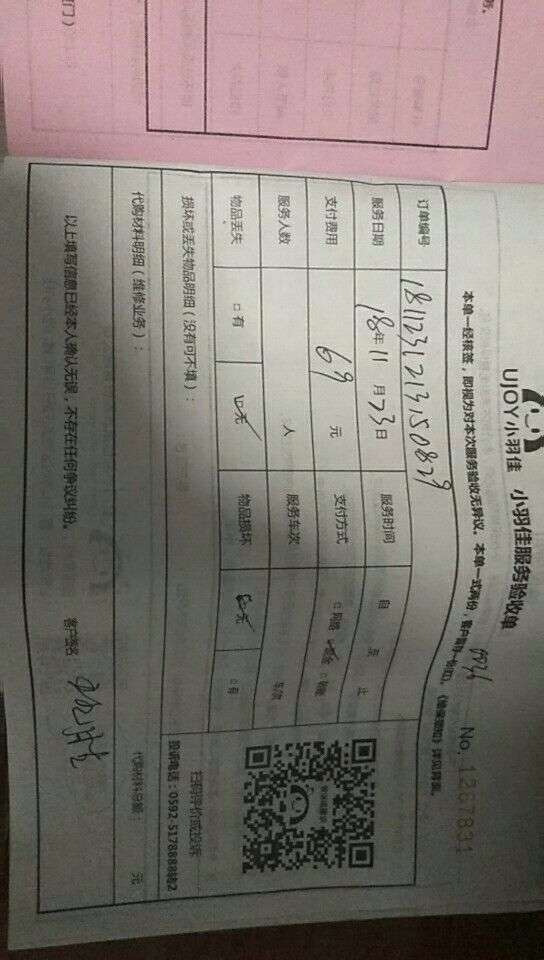 UJOY小羽佳 小羽佳服务验收单
No. 1267831
本单一经核签，即视为对本次服务验收无异议。本单一式两份，客户留存一份(红)。《健康需知》详见背面。
订单编号 1811231213150829
服务日期 18年 11 月 23 日 服务时间 自 至 止
支付费用 69 元 支付方式 □ 网络 □ 现金
服务人数 人 服务车次 车次
物品丢失 □ 有 □ 无 物品损坏 □ 无 □ 有
扫码评价或投诉
投诉电话：0592-5178888
损坏或丢失物品明细（没有可不填）：
代购材料明细（维修业务）： 代购材料总额： 元
以上填写信息已经本人确认无误，不存在任何争议纠纷。 客户签名